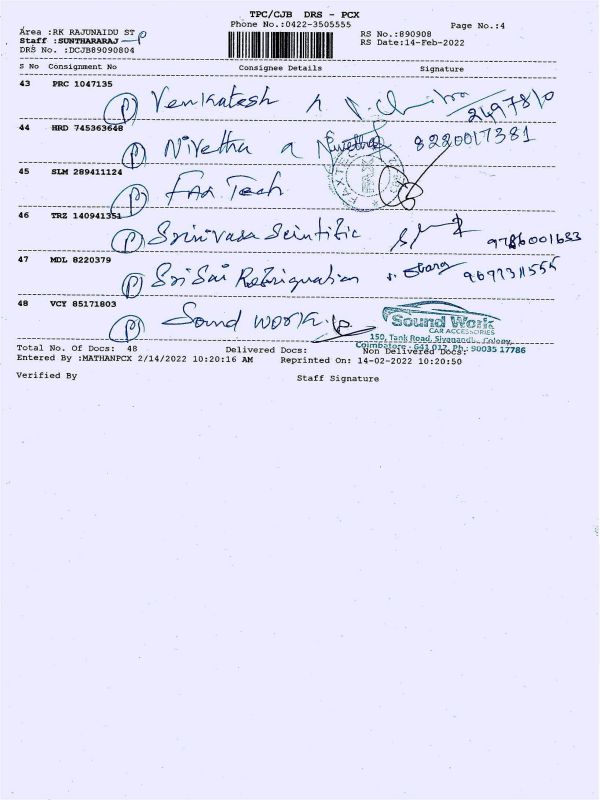 TPC/CJB DRS - PCX
Phone No.:0422-3505555
Page No.:4
Area :RK RAJUNAIDU ST
RS No.:890908
Staff :SUNTHARARAJ
RS Date:14-Feb-2022
DRS No. :DCJB89090804
S No Consignment No Consignee Details Signature
43 PRC 1047135
(P) Venkatesh
44 HRD 745363648
(P) Nivetha a Nivetha 8220017381
45 SLM 289411124
(P) FAX Tech
46 TRZ 140941351
(P) Srinivasa Scintific
47 MDL 8220379
(P) Sri Sai
48 VCY 85171803
(P) Sound work
Sound Work
CAR ACCESSORIES
150, Tank Road, Colony,
Coimbatore - 641 012. Ph.: 90035 17786
Total No. Of Docs: 48 Delivered Docs: Non Delivered Docs:
Entered By :MATHANPCX 2/14/2022 10:20:16 AM Reprinted On: 14-02-2022 10:20:50
Verified By Staff Signature